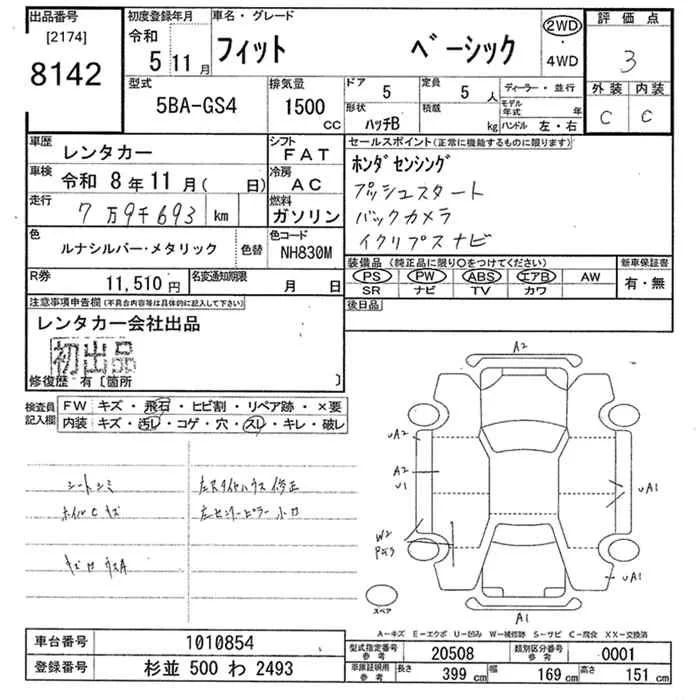 出品番号
[2174]
8142
初度登録年月
令和
5 11月
車名・グレード
フィット ベーシック
2WD
・
4WD
評価点
3
外装 内装
C C
型式
5BA-GS4
排気量
1500
CC
ドア
5
定員
5人
形状
ハッチB
積載
kg
ディーラー・並行
モデル年式 年
ハンドル 左・右
車歴
レンタカー
シフト
FAT
車検
令和 8年11月( 日)
冷房
AC
走行
7万9千693 km
燃料
ガソリン
色
ルナシルバー・メタリック
色替
色コード
NH830M
R券
11,510円
名変通知期限
月 日
セールスポイント(正常に機能するものに限ります)
ホンダセンシング
プッシュスタート
バックカメラ
イクリプスナビ
装備品(純正品に限り○をつけてください)
PS PW ABS エアB AW
SR ナビ TV カワ
新車保証書
有・無
後日品
注意事項申告欄(不具合内容等は具体的に記入して下さい)
レンタカー会社出品
初出品
修復歴 有〔箇所 〕
検査員記入欄
FW キズ・飛石・ヒビ割・リペア跡・×要
内装 キズ・汚レ・コゲ・穴・スレ・キレ・破レ
シートシミ
ホイルCキズ
左リタイヤハウス修正
左センターピラー小
A2
uA2
A2
U1
W2
uA1
uA1
A1
スペア
A-キズ E-エクボ U-凹み W-補修跡 S-サビ C-腐食 XX-交換済
車台番号
1010854
登録番号
杉並 500 わ 2493
型式指定番号
参考
20508
類別区分番号
参考
0001
車庫証明用
参考
長さ
399 cm
幅
169 cm
高さ
151 cm